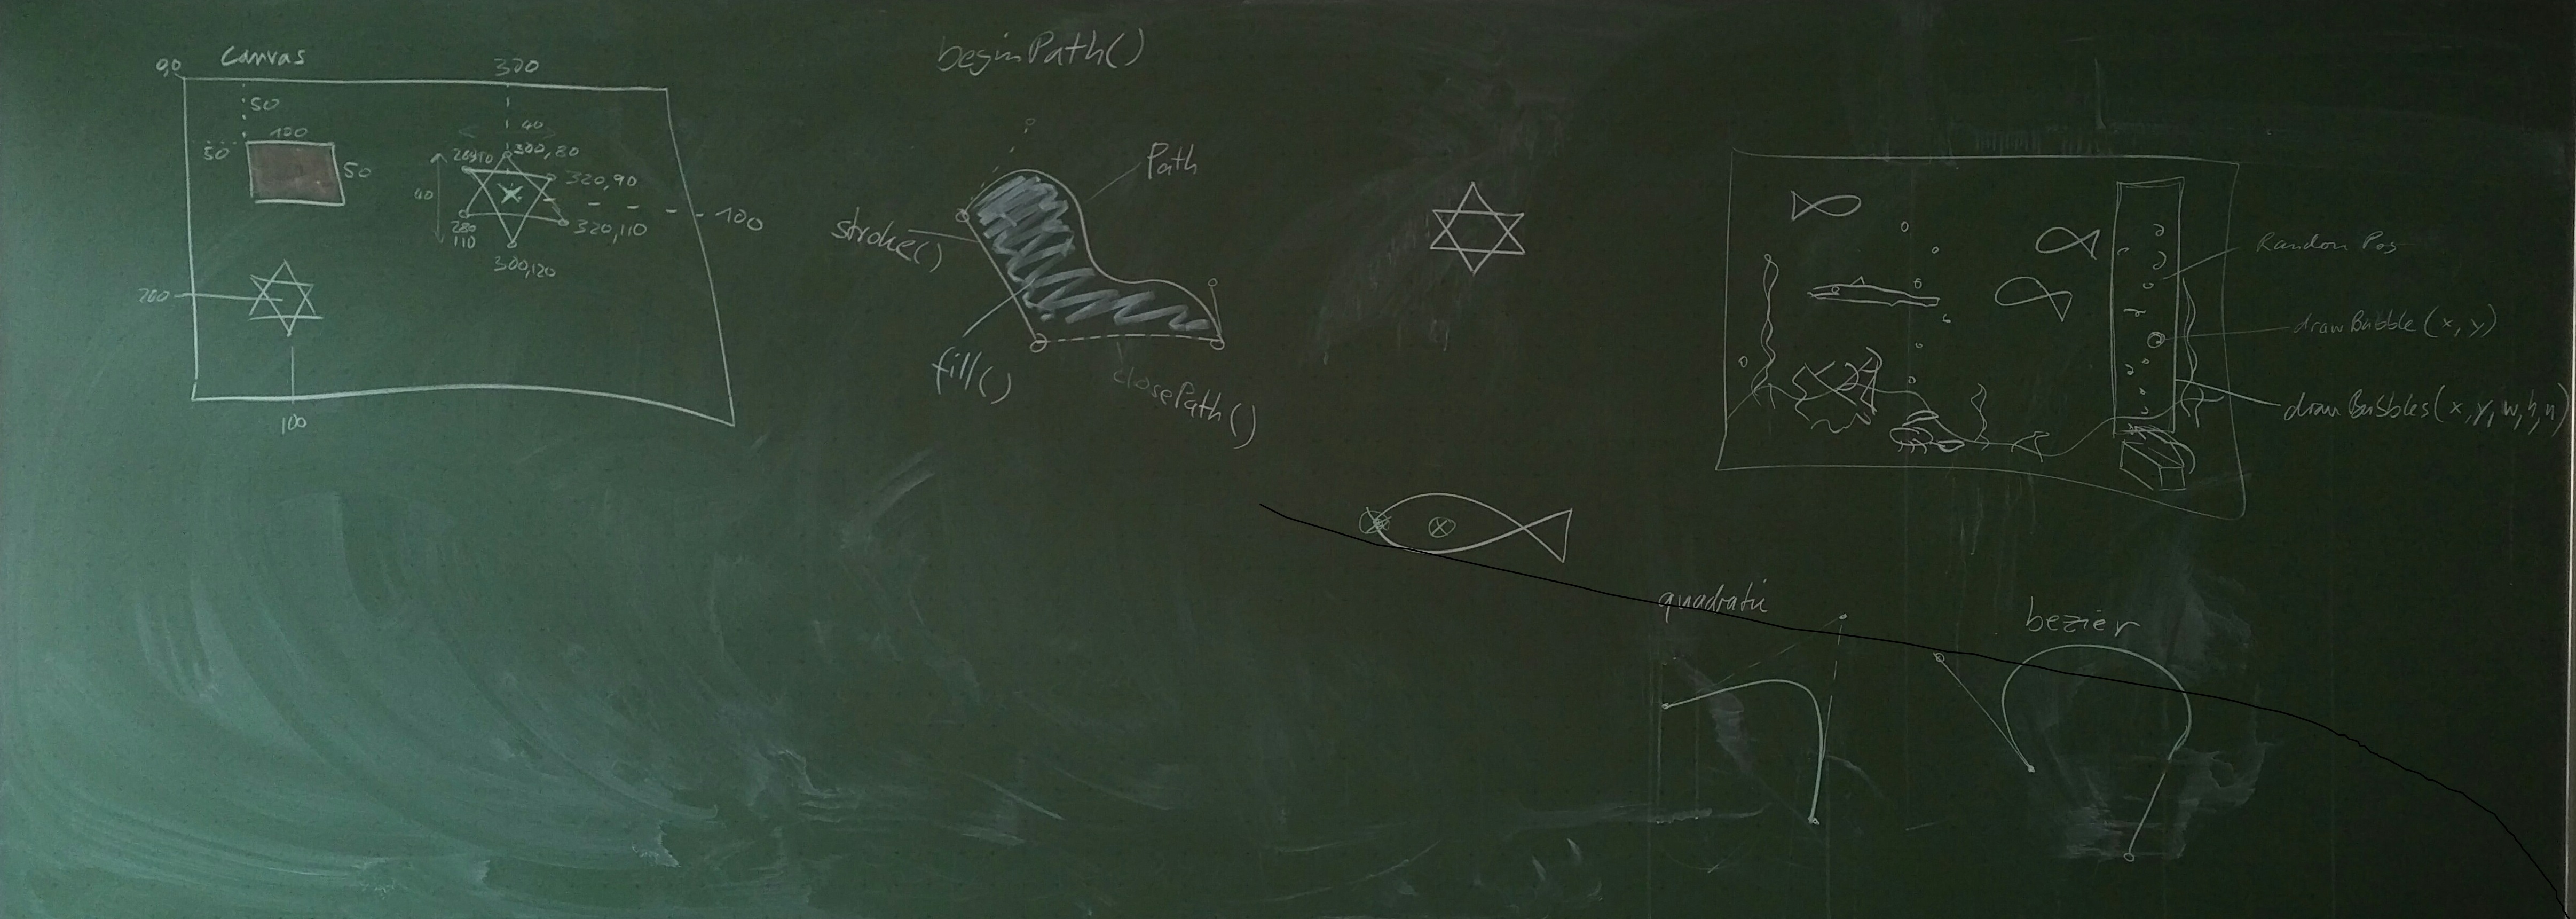 0,0 Canvas
300
50
100
50
50
40
40
300,80
320,90
100
280
110
320,110
300,120
200
100
beginPath()
Path
stroke()
fill()
closePath()
Random Pos
drawBubble(x,y)
drawBubbles(x,y,w,h,n)
quadratic
bezier